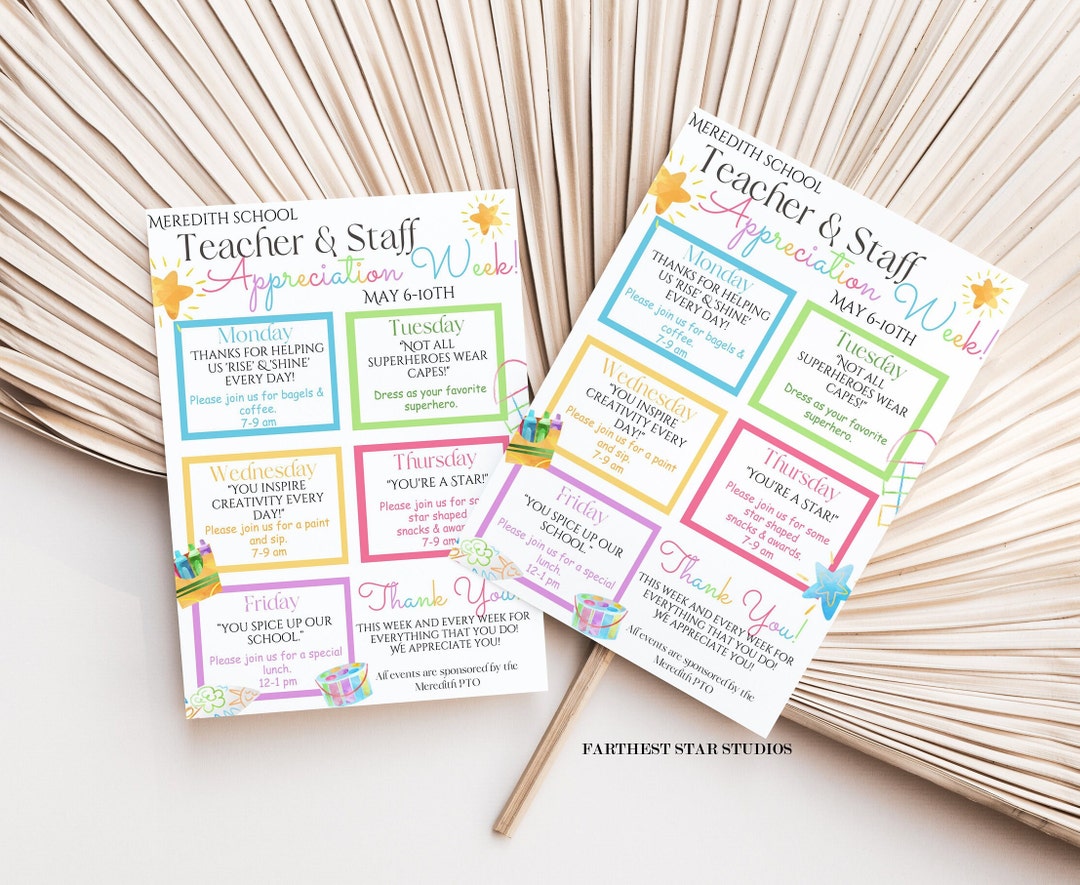 MEREDITH SCHOOL
Teacher & Staff
Appreciation Week!
MAY 6-10TH
Monday
'THANKS FOR HELPING
US 'RISE' & 'SHINE'
EVERY DAY!
Please join us for bagels &
coffee.
7-9 am
Tuesday
"NOT ALL
SUPERHEROES WEAR
CAPES!"
Dress as your favorite
superhero.
Wednesday
"YOU INSPIRE
CREATIVITY EVERY
DAY!"
Please join us for a paint
and sip.
7-9 am
Thursday
"YOU'RE A STAR!"
Please join us for so
star shaped
snacks & awards
7-9 am
Friday
"YOU SPICE UP OUR
SCHOOL."
Please join us for a special
lunch.
12-1 pm
Thank You!
THIS WEEK AND EVERY WEEK FOR
EVERYTHING THAT YOU DO!
WE APPRECIATE YOU!
All events are sponsored by the
Meredith PTO
MEREDITH SCHOOL
Teacher & Staff
Appreciation Week!
MAY 6-10TH
Monday
THANKS FOR HELPING
US 'RISE' & 'SHINE'
EVERY DAY!
Please join us for bagels &
coffee.
7-9 am
Tuesday
"NOT ALL
SUPERHEROES WEAR
CAPES!"
Dress as your favorite
superhero.
Wednesday
"YOU INSPIRE
CREATIVITY EVERY
DAY!"
Please join us for a paint
and sip.
7-9 am
Thursday
"YOU'RE A STAR!"
Please join us for some
star shaped
snacks & awards.
7-9 am
Friday
"YOU SPICE UP OUR
SCHOOL."
Please join us for a special
lunch.
12-1 pm
Thank You!
THIS WEEK AND EVERY WEEK FOR
EVERYTHING THAT YOU DO!
WE APPRECIATE YOU!
All events are sponsored by the
Meredith PTO
FARTHEST STAR STUDIOS